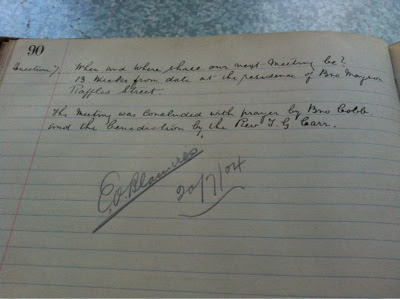 90
Question 7, When and where shall our next Meeting be?
13 Weeks from date at the residence of Bro
Raffles Street.
The Meeting was concluded with prayer by Bro Cobb
and the benediction by the Rev T. G Carr.
20/7/04